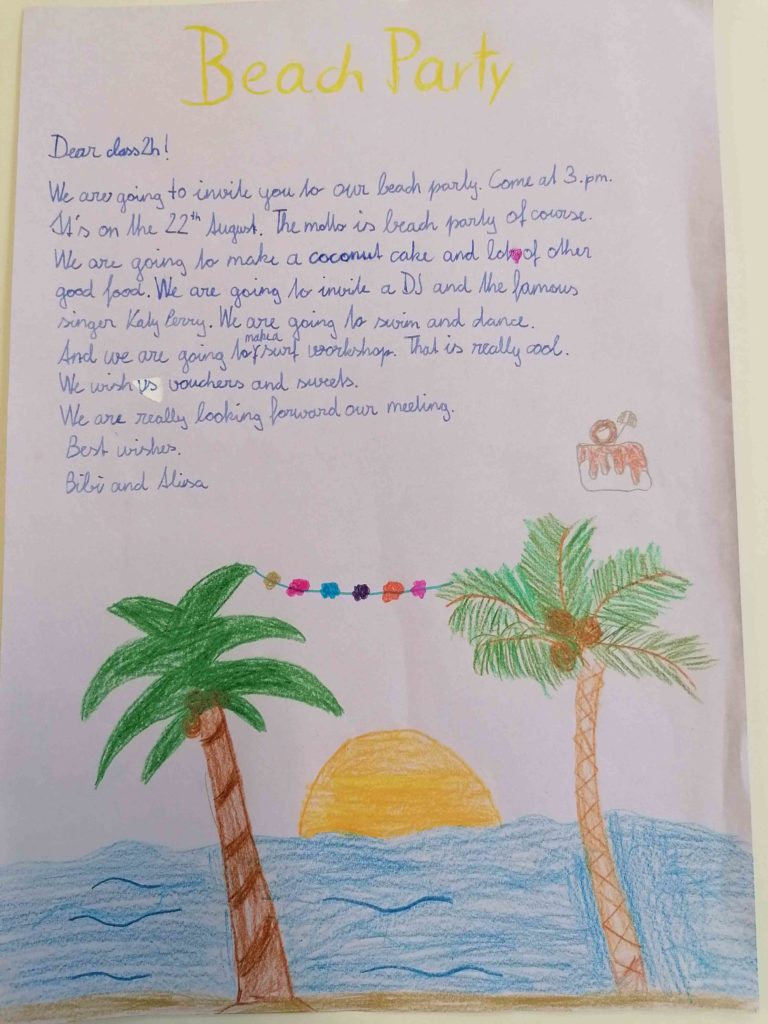 Beach Party
Dear class 2h!
We are going to invite you to our beach party. Come at 3.pm.
It's on the 22th August. The motto is beach party of course.
We are going to make a coconut cake and lot of other
good food. We are going to invite a DJ and the famous
singer Katy Perry. We are going to swim and dance.
And we are going to make a surf workshop. That is really cool.
We wish us vouchers and sweets.
We are really looking forward our meeting.
Best wishes.
Bibi and